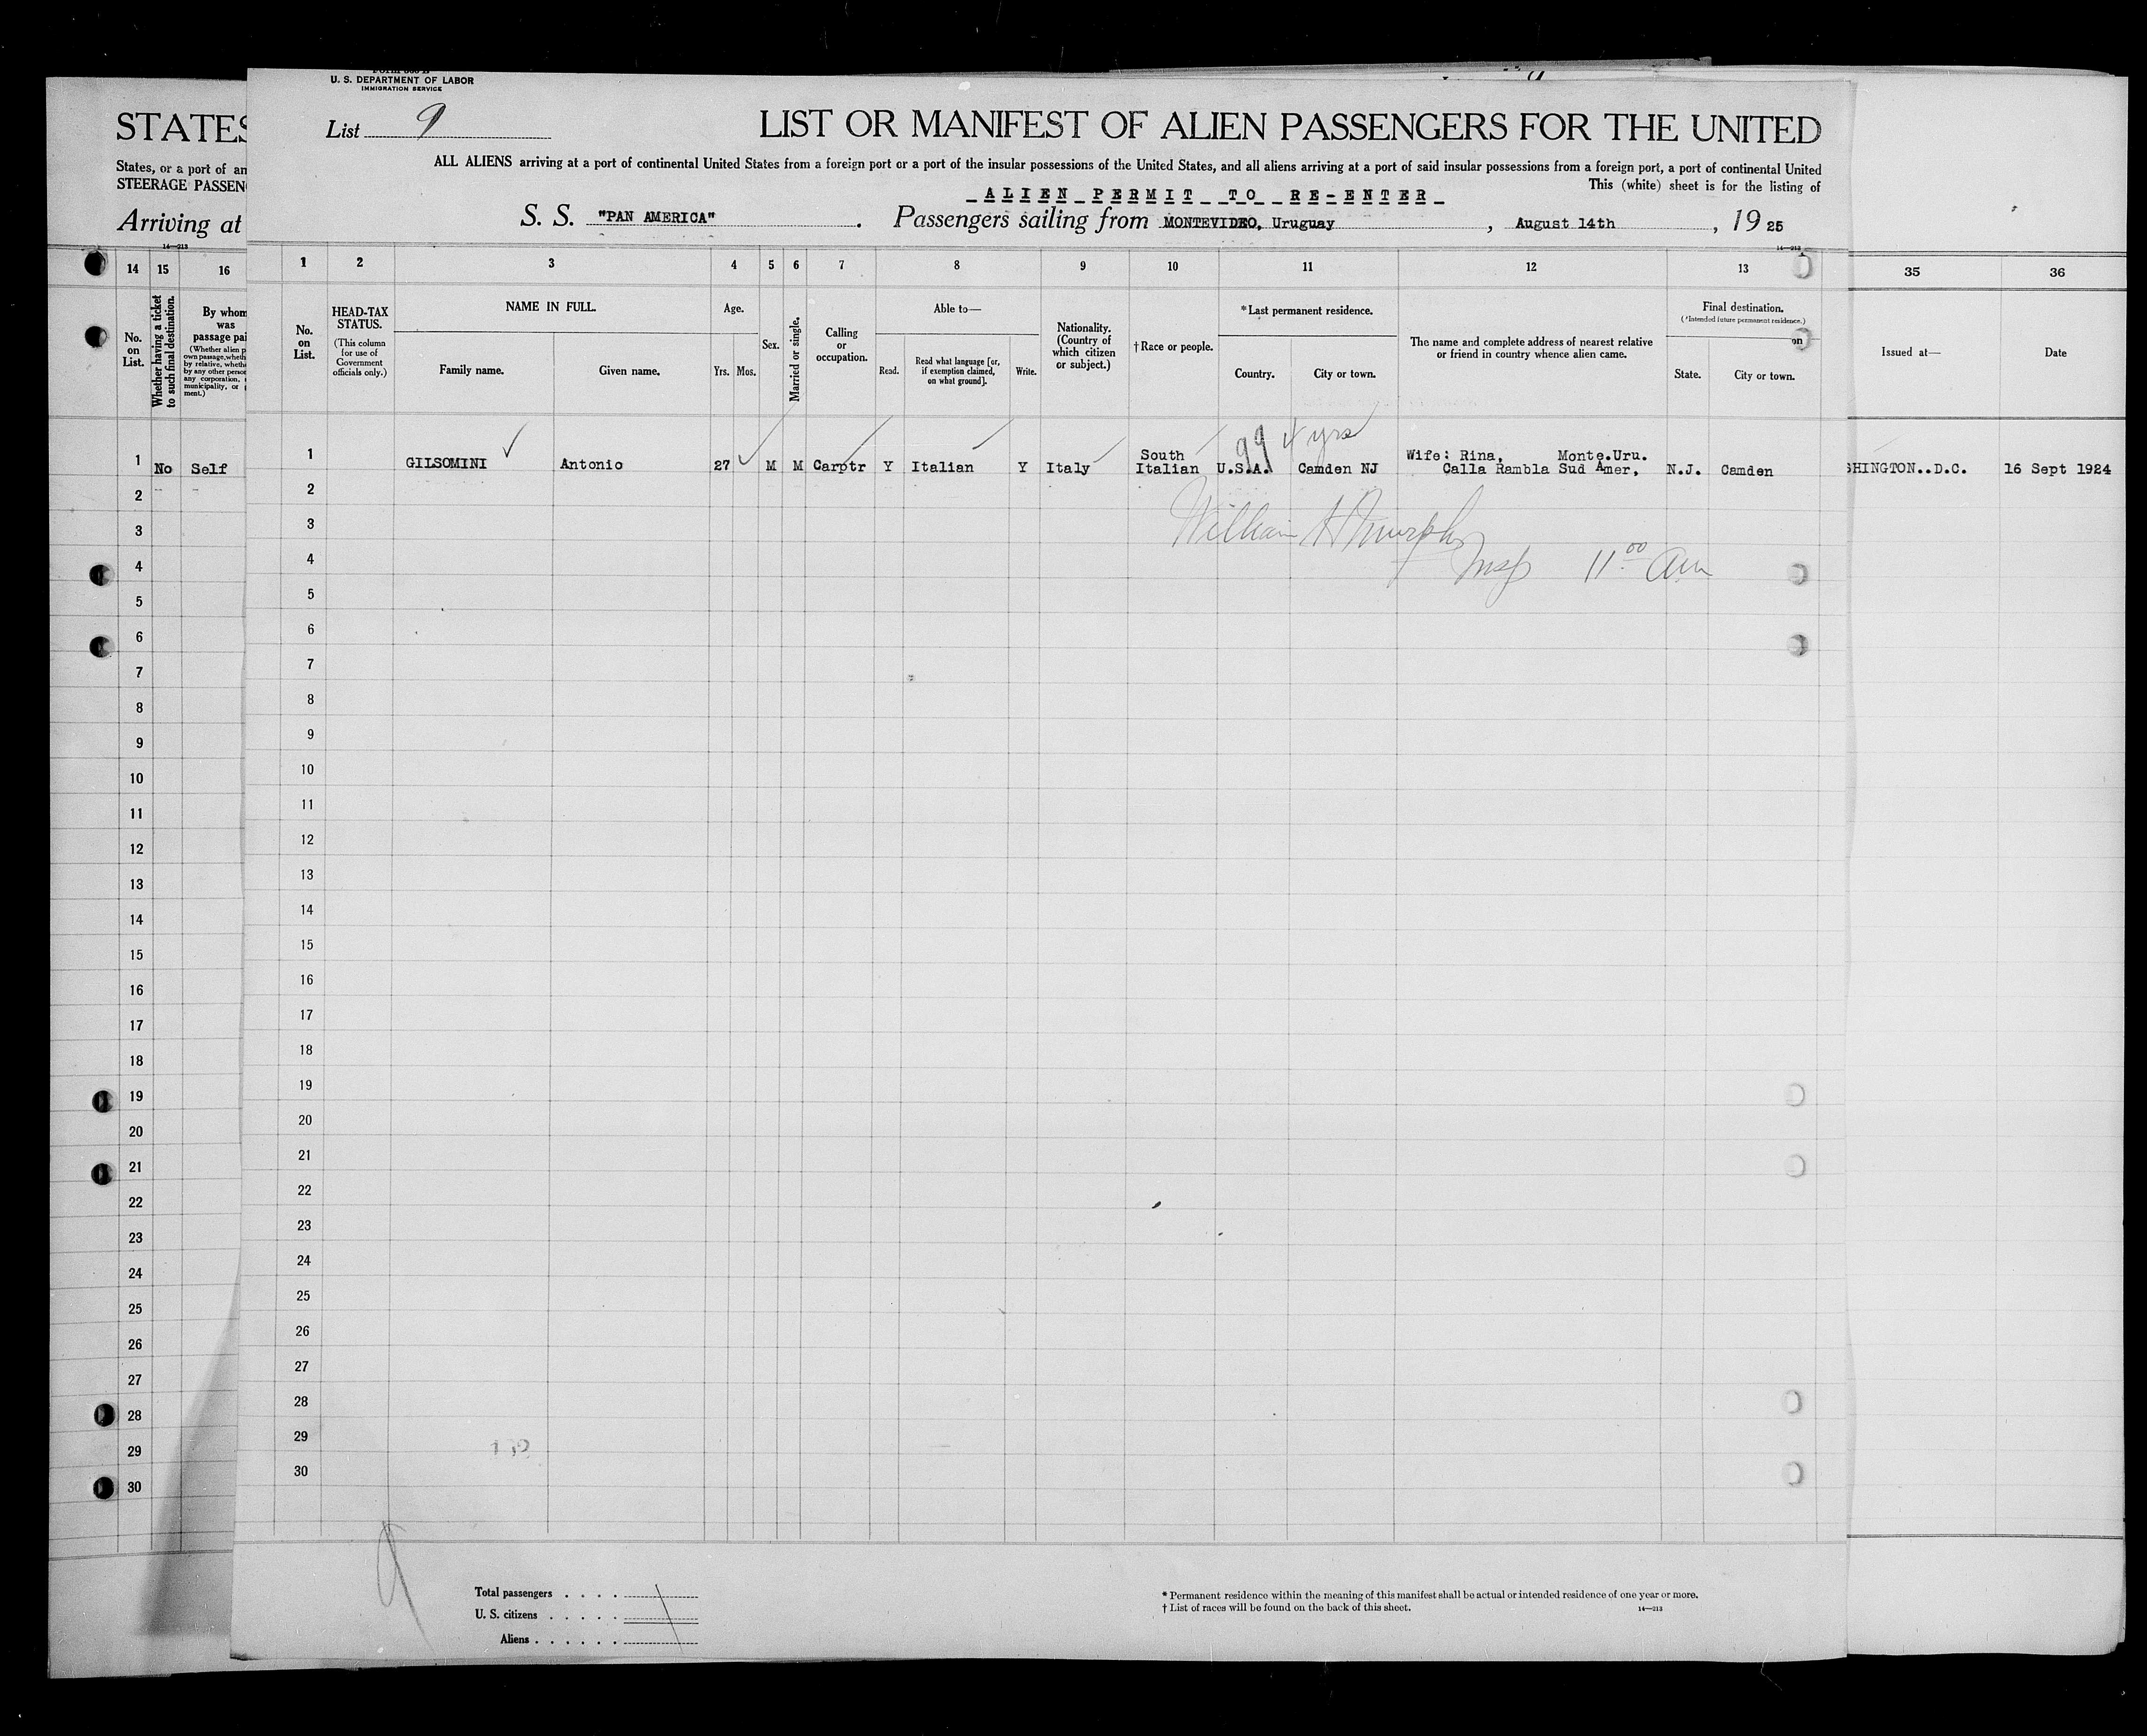 U. S. DEPARTMENT OF LABOR
IMMIGRATION SERVICE
List 9
LIST OR MANIFEST OF ALIEN PASSENGERS FOR THE UNITED
ALL ALIENS arriving at a port of continental United States from a foreign port or a port of the insular possessions of the United States, and all aliens arriving at a port of said insular possessions from a foreign port, a port of continental United
This (white) sheet is for the listing of
ALIEN PERMIT TO RE-ENTER
S. S. "PAN AMERICA". Passengers sailing from MONTEVIDEO, Uruguay, August 14th, 19 25
14—213
STATES
States, or a port of an
STEERAGE PASSEN
Arriving at
14—213
14 15 16
No. on List.
Whether having a ticket to such final destination.
By whom
was
passage pai
(Whether alien p
own passage, wheth
by relative, whethe
by any other perso
any corporation,
municipality, or
ment.)
1 2 3 4 5 6 7 8 9 10 11 12 13
No. on List.
HEAD-TAX STATUS.
(This column for use of Government officials only.)
NAME IN FULL.
Family name. Given name.
Age.
Yrs. Mos.
Sex.
Married or single.
Calling or occupation.
Able to—
Read. Read what language [or, if exemption claimed, on what ground]. Write.
Nationality. (Country of which citizen or subject.)
†Race or people.
*Last permanent residence.
Country. City or town.
The name and complete address of nearest relative or friend in country whence alien came.
Final destination.
(*Intended future permanent residence.)
State. City or town.
on
35 36
Issued at— Date
1 No Self
1 GILSOMINI Antonio 27 M M Carptr Y Italian Y Italy South Italian U.S.A. Camden NJ Wife: Rina, Monte.Uru. Calla Rambla Sud Amer, N.J. Camden
99 4 yrs
SHINGTON..D.C. 16 Sept 1924
William H Murphy
Insp 11 00 am
2
3
4
5
6
7
8
9
10
11
12
13
14
15
16
17
18
19
20
21
22
23
24
25
26
27
28
29
30
2
3
4
5
6
7
8
9
10
11
12
13
14
15
16
17
18
19
20
21
22
23
24
25
26
27
28
29
30
9
Total passengers . . . .
U. S. citizens . . . . .
Aliens . . . . . .
* Permanent residence within the meaning of this manifest shall be actual or intended residence of one year or more.
† List of races will be found on the back of this sheet.
14—213